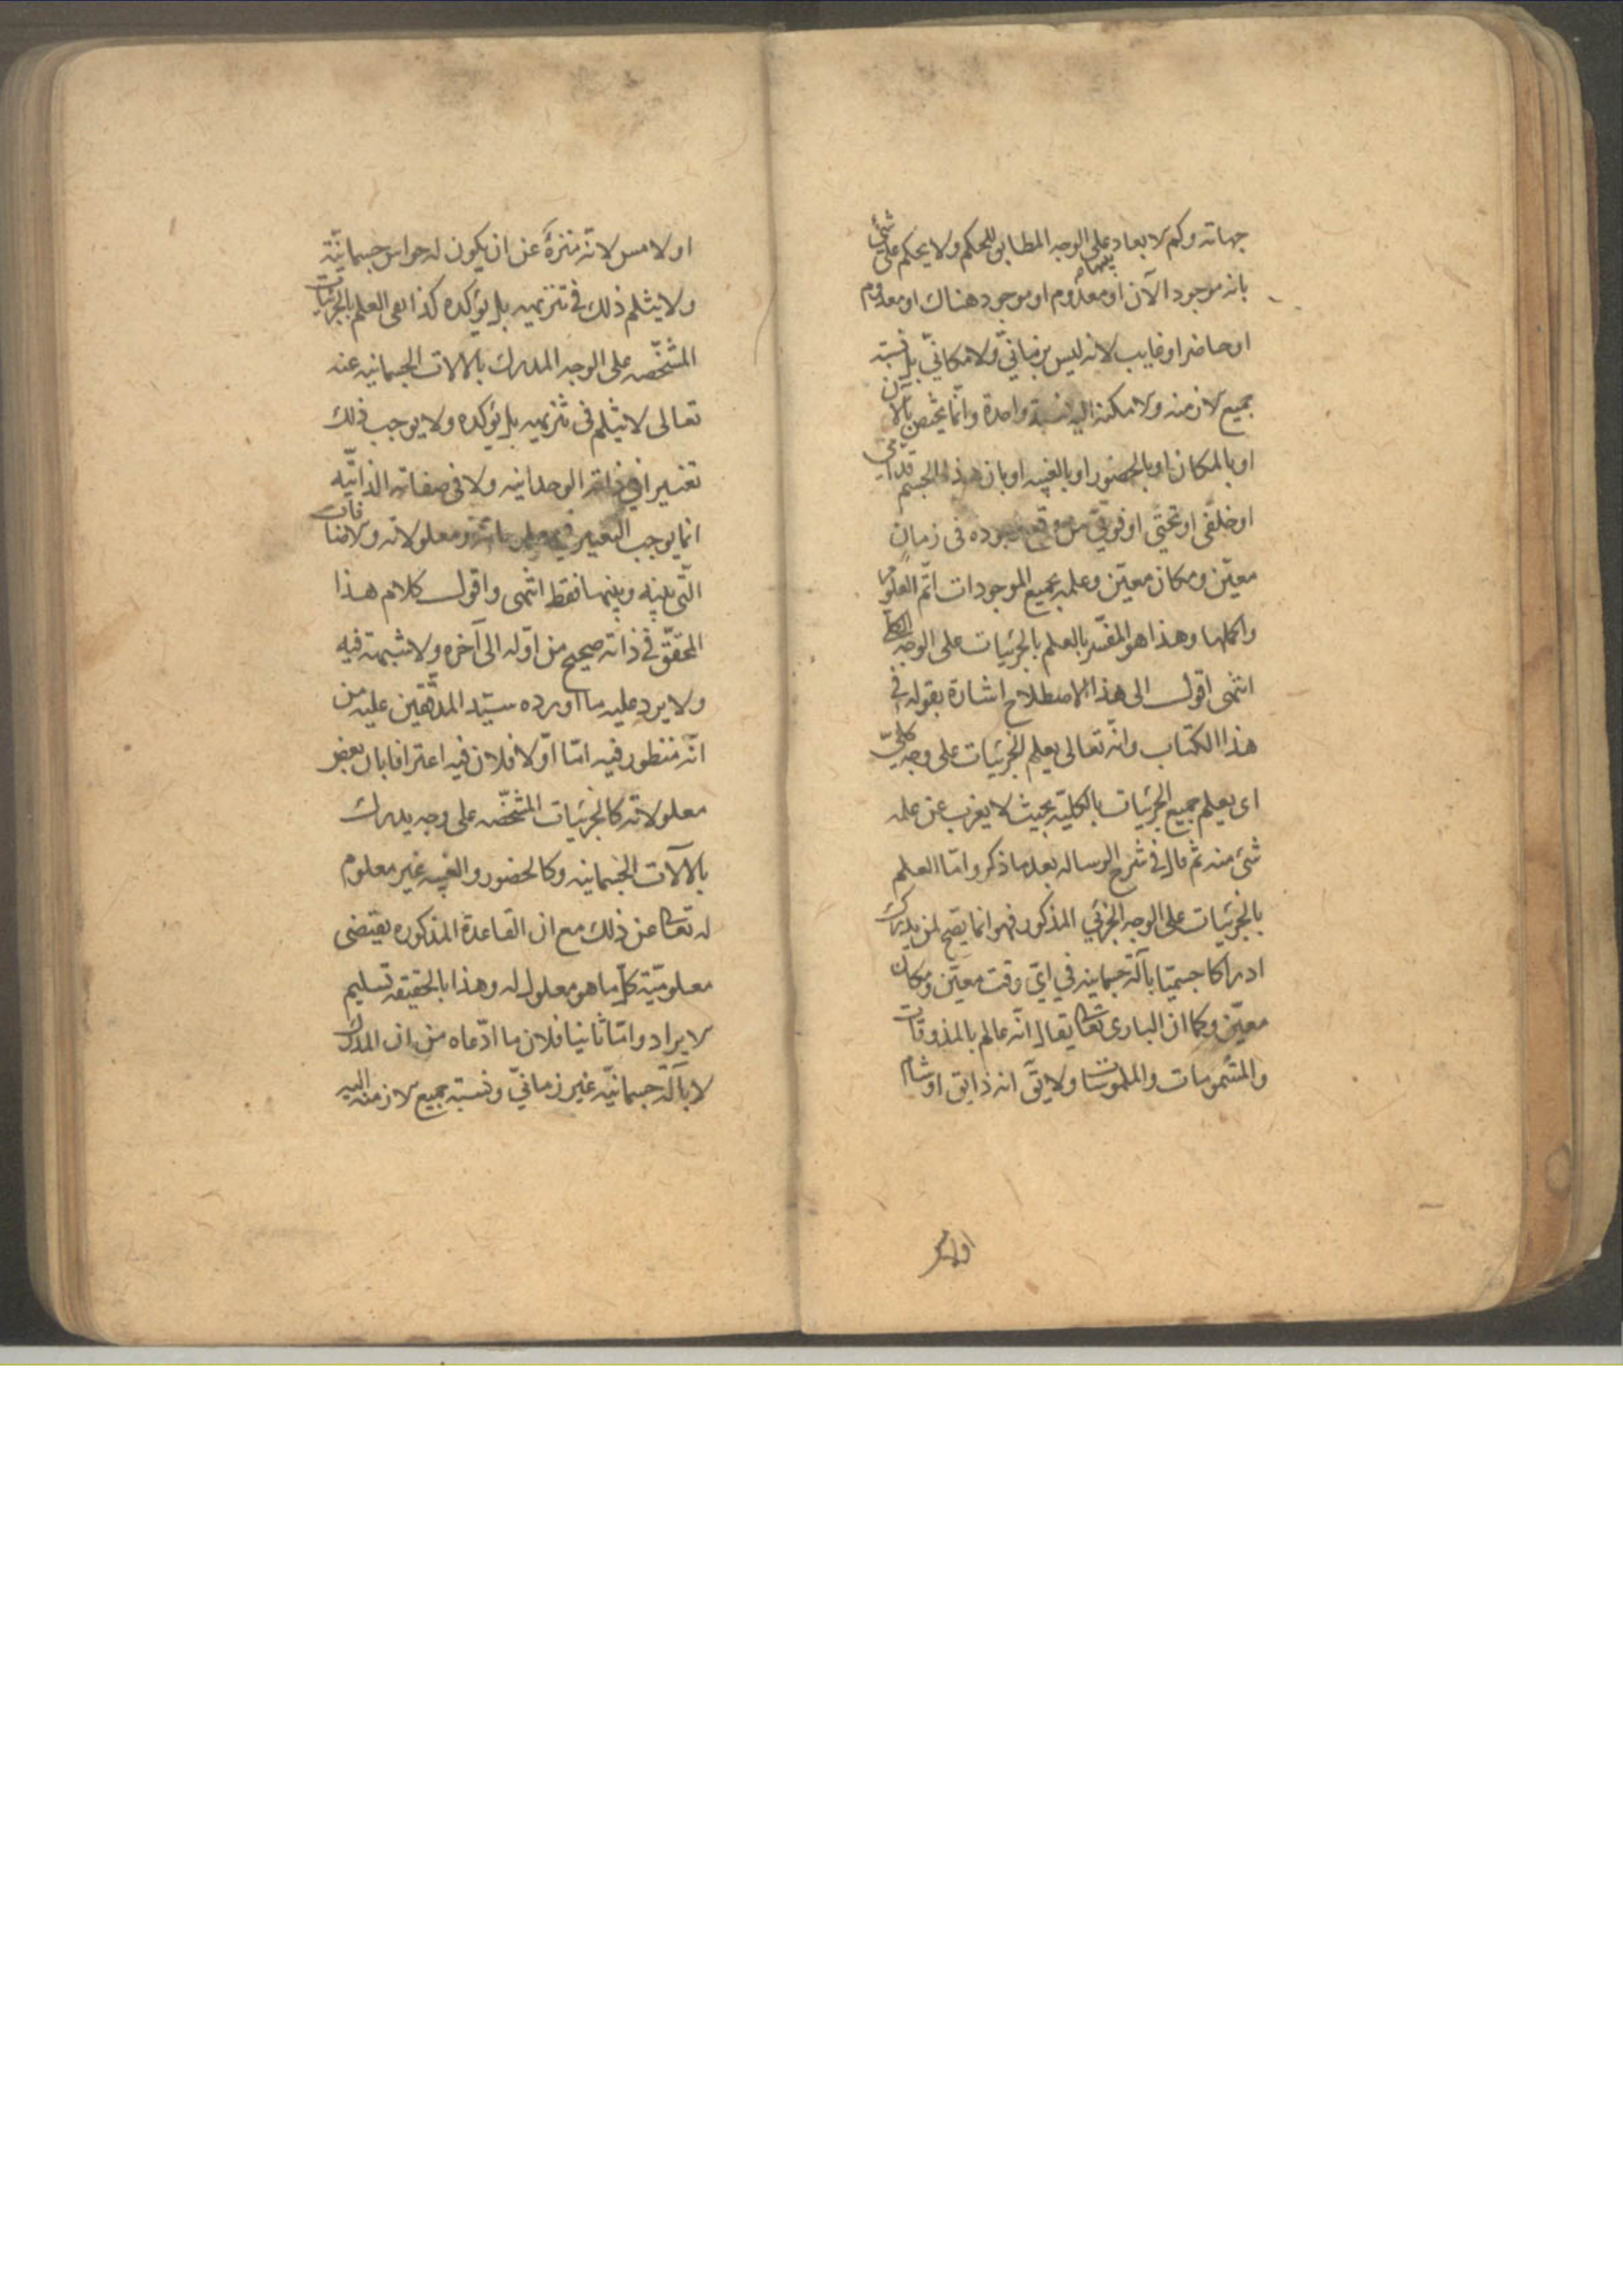 جهاته وكم الابعاد على الوجه المطابق للحكم ولا يحكم على شئ
بانه موجود الآن او معدوم او موجود هناك او معدوم
او حاضر او غايب لانه ليس بزمانىّ ولا مكانىّ بل نسبة
جميع الازمنه والامكنة اليه نسبة واحدة وانّما يختص بالآن
او بالمكان او بالحضور او بالغيبه او بان هذا الجسم قدامى
او خلفى او تحتى او فوقىّ من وقع وجوده فى زمان
معيّن ومكان معيّن وعلمه بجميع الموجودات اتمّ العلوم
واكملها وهذا هو المفسّر بالعلم بالجزئيات على الوجه الكلى
انتهى اقول الى هذا الاصطلاح اشارة بقوله فى
هذا الكتاب وانّه تعالى يعلم الجزئيات على وجه كلىّ
اى يعلم جميع الجزئيات بالكليّه بحيث لا يعزب عن علمه
شئ منه ثم قال فى شرح الرساله بعد ما ذكر وامّا العلم
بالجزئيات على الوجه الجزئي المذكور فهو انما يصّح لمن يدرك
ادراكا جسميّا بآلة جسمانيه في اىّ وقت معيّن ومكان
معيّن وكما ان البارى تعالى يقال انّه عالم بالمذوقات
والمشمومات والملموسات ولا يقّ انه ذايق او شام
او لامس
او لامس لانّه منزهّ عن ان يكون له حواس جسمانيّة
ولا يثلم ذلك فى تنزيهه بل يؤكده كذا نفى العلم بالجزئيات
المشخّصه على الوجه المدرك بالالات الجسمانيه عنه
تعالى لا يثلم فى تنزيهه بل يؤكده ولا يوجب ذلك
تغيّرا فى ذاته الوحدانيه ولا فى صفاته الذاتيّه
انما يوجب التغير فى معلوماته ومعلولاته والاضافات
الّتى بينه وبينها فقط انتهى واقول كلام هذا
المحقّق فى ذاته صحيح من اوّله الى آخره ولا شبهة فيه
ولا يرد عليه ما اورده سيّد المدققّين عليه من
انّه منظور فيه امّا اوّلا فلان فيه اعترافا بان بعض
معلولاته كالجزئيات المشخّصه على وجه يدرك
بالآلات الجسمانيه وكالحضور والغيبه غير معلوم
له تعالى عن ذلك مع ان القاعدة المذكوره يقتضى
معلوميّة كلّ ما هو معلول له وهذا بالحقيقه تسليم
الايراد وامّا ثانيا فلان ما ادّعاه من ان المدرك
لا بآلة جسمانيّه غير زمانىّ ونسبة جميع الازمنه اليه